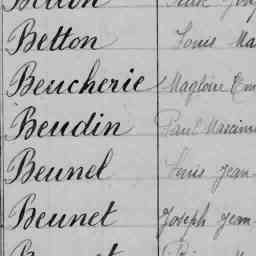 Betton Louis Ma
Beucherie Magloire Em
Beudin Paul Maxime
Beunel Louis Jean
Beunet Joseph Jean